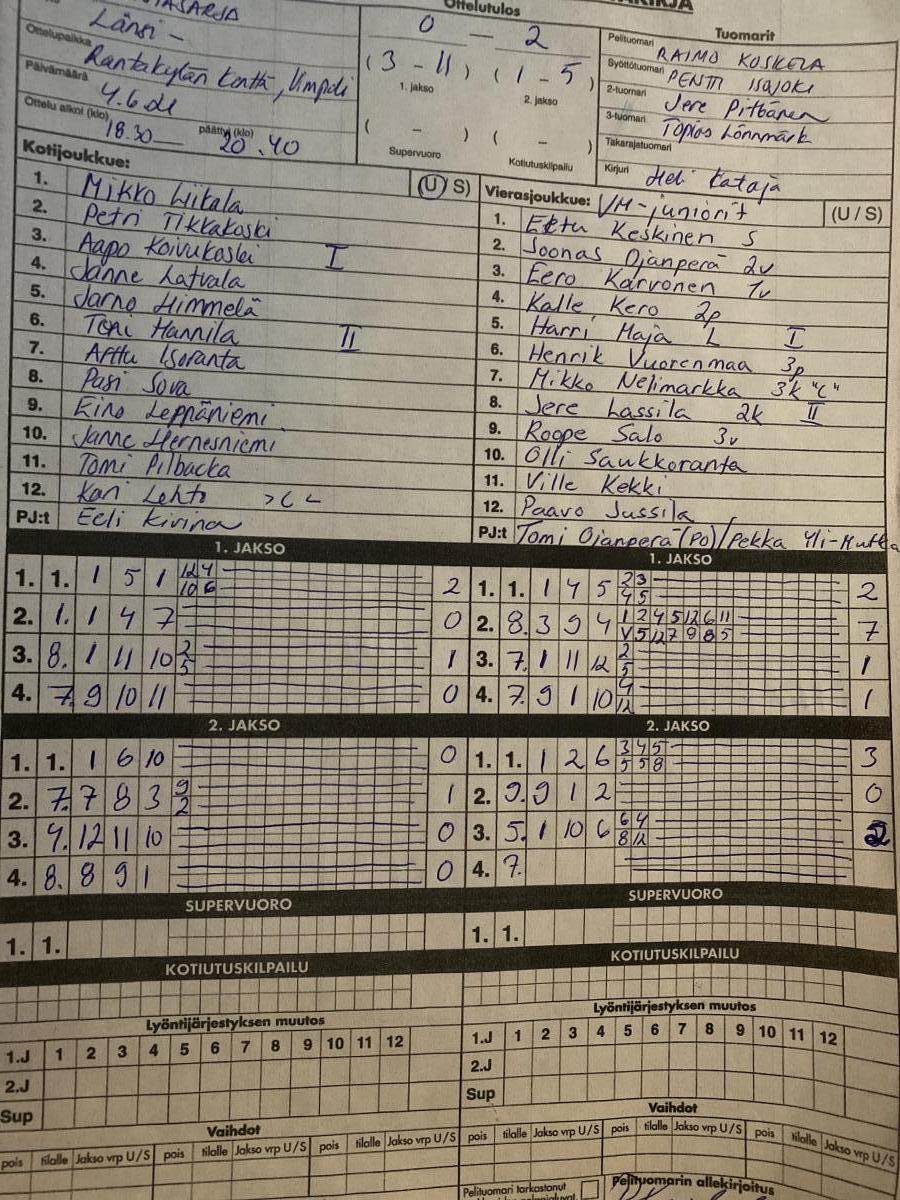 Länsi -
Ottelupaikka Rantakylän kenttä,
Päivämäärä 4.6.
Ottelu alkoi (klo) 18.30 päättyi (klo) 20.40
Ottelutulos
0 — 2
(3 - 11) (1 - 5)
1. jakso 2. jakso
( - ) ( - )
Supervuoro Kotiutuskilpailu
Tuomarit
Pelituomari RAIMO KOSKELA
Syöttötuomari PENTTI ISOJOKI
2-tuomari Jere Pitkänen
3-tuomari Topias Lönnmark
Takarajatuomari
Kirjuri Heli Kataja
Kotijoukkue: (U/S)
1. Mikko Liikala
2. Petri Tikkakoski
3. Aapo Koivukoski I
4. Janne Latvala
5. Jarno Himmelä
6. Toni Hannila II
7. Arttu Isoranta
8. Pasi Sova
9. Eino Leppäniemi
10. Janne Hernesniemi
11. Tomi Pilbacka
12. Kari Lehto
PJ:t Eeli
Vierasjoukkue: VM-juniorit (U / S)
1. Eetu Keskinen S
2. Joonas Ojanperä 2v
3. Eero Karvonen 1v
4. Kalle Kero 2p
5. Harri Haja L I
6. Henrik Vuorenmaa 3p
7. Mikko Nelimarkka 3k "C"
8. Jere Lassila 2k II
9. Roope Salo 3v
10. Olli Saukkoranta
11. Ville Kekki
12. Paavo Jussila
PJ:t Tomi Ojanperä (PO)/Pekka Yli-Hutka
1. JAKSO
1. 1. 1 5 1 12 4 2
10 6
2. 1. 1 4 7 0
3. 8. 1 11 10 2 1
5
4. 7. 9 10 11 0
1. JAKSO
1. 1. 1 4 5 2 3 2
4 5
2. 8. 3 9 4 1 2 4 5 12 6 11 7
V 5 12 7 9 8 5
3. 7. 1 11 12 2 1
5
4. 7. 9 1 10 4 1
12
2. JAKSO
1. 1. 1 6 10 0
2. 7. 7 8 3 9 1
2
3. 4. 12 11 10 0
4. 8. 8 9 1 0
2. JAKSO
1. 1. 1 2 6 3 4 5 3
5 5 8
2. 9. 9 1 2 0
3. 5. 1 10 6 6 4 2
8 12
4. 7.
SUPERVUORO
1. 1.
SUPERVUORO
1. 1.
KOTIUTUSKILPAILU
KOTIUTUSKILPAILU
Lyöntijärjestyksen muutos
1.J 1 2 3 4 5 6 7 8 9 10 11 12
2.J
Sup
Lyöntijärjestyksen muutos
1.J 1 2 3 4 5 6 7 8 9 10 11 12
2.J
Sup
Vaihdot
pois tilalle Jakso vrp U/S pois tilalle Jakso vrp U/S pois tilalle Jakso vrp U/S
Vaihdot
pois tilalle Jakso vrp U/S pois tilalle Jakso vrp U/S pois tilalle Jakso vrp U/S
Pelituomari tarkastanut
Pelituomarin allekirjoitus